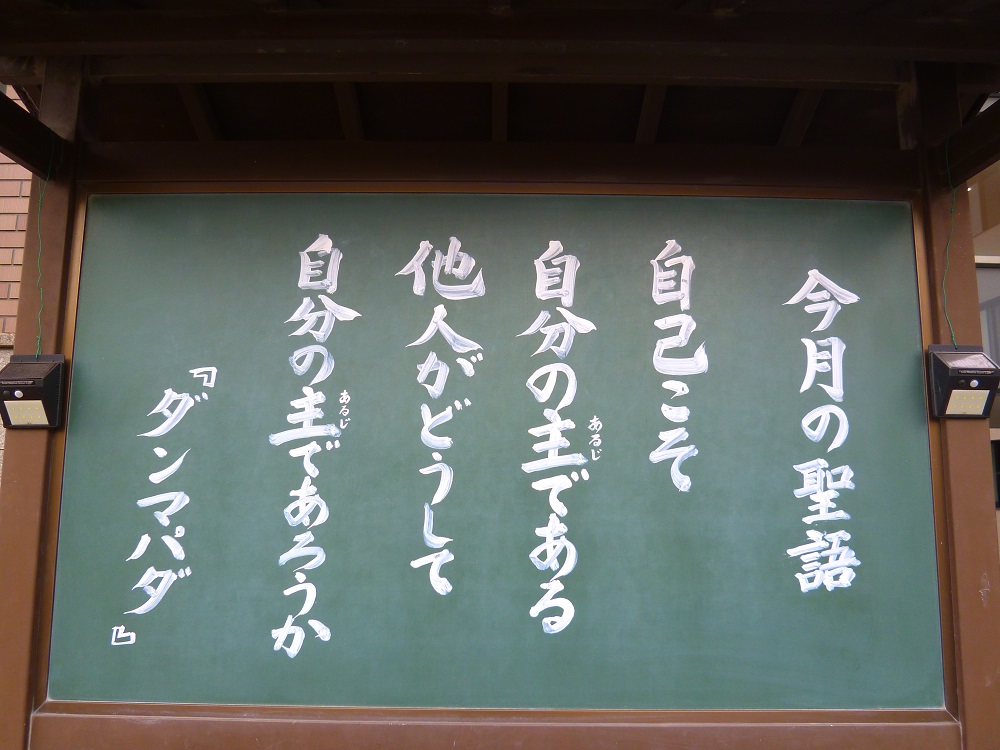 今月の聖語
自己こそ
自分の主である
あるじ
他人がどうして
自分の主であろうか
あるじ
『ダンマパダ』